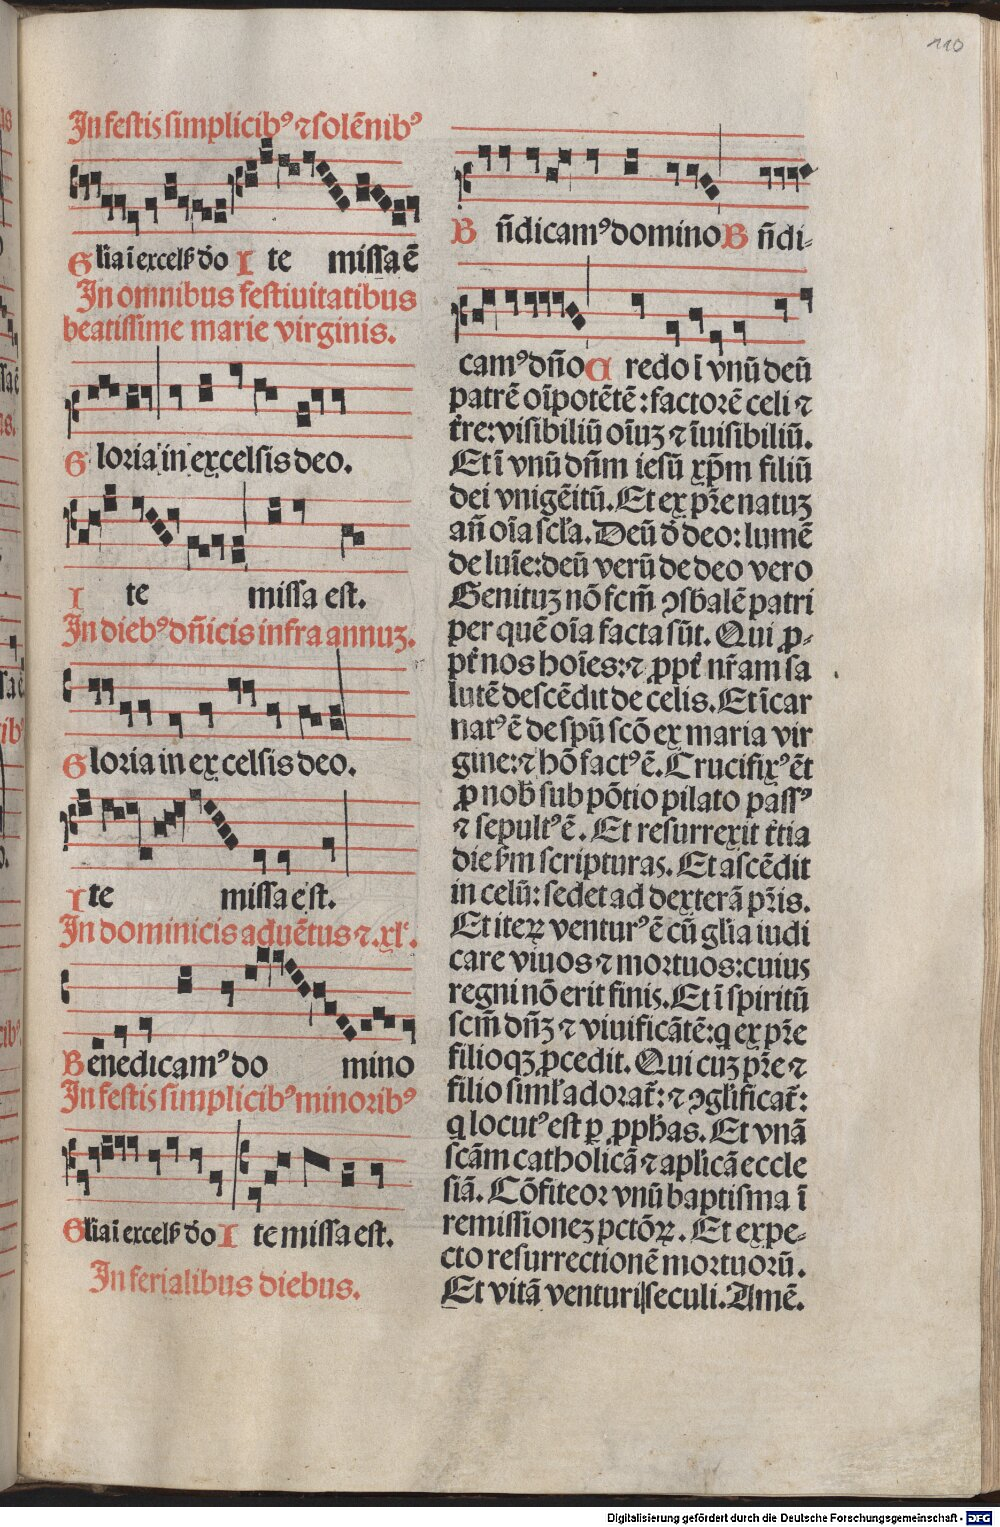 110
In festis simplicibꝰ ⁊ solēnibꝰ
Glia ī excelẜ dō Ite missa ē
In omnibus festiuitatibus
beatissime marie virginis.
Gloria in excelsis deo.
Ite missa est.
In diebꝰ dn̄icis infra annuꝫ.
Gloria in excelsis deo.
Ite missa est.
In dominicis aduētus ⁊ .xl.
Benedicamꝰ do mino
In festis simplicibꝰ minoribꝰ
Glia ī excelẜ dō Ite missa est.
In ferialibus diebus.
Bn̄dicamꝰ domino Bn̄di-
camꝰ dn̄o Credo ī vnū deū
patrē oīpotētē: factorē celi ⁊
tr̄e: visibiliū oīuꝫ ⁊ īuisibiliū.
Et ī vnū dn̄m iesū xp̄m filiū
dei vnigēitū. Et ex pr̄e natuꝫ
an̄ oīa scl̄a. Deū d̄ deo: lumē
de luīe: deū verū de deo vero
Genituꝫ nō fcm̄ ↄsbalē patri
per quē oīa facta sūt. Qui ꝓ-
pt̄ nos hoīes: ⁊ ꝓpt̄ nr̄am sa
lutē descēdit de celis. Et īcar
natꝰ ē de spū scō ex maria vir
gine: ⁊ hō factꝰ ē. Crucifixꝰ ēt
ꝓ nob̄ sub pōtio pilato passꝰ
⁊ sepultꝰ ē. Et resurrexit t̄tia
die ẜm scripturas. Et ascēdit
in celū: sedet ad dexterā pr̄is.
Et iteꝝ venturꝰ ē cū gl̄ia iudi
care viuos ⁊ mortuos: cuius
regni nō erit finis. Et ī spiritū
scm̄ dn̄ꝫ ⁊ viuificātē: q ex pr̄e
filioqꝫ ꝓcedit. Qui cuꝫ pr̄e ⁊
filio siml̄ adorat̄: ⁊ ↄgl̄ificat̄:
q locutꝰ est ꝑ ꝓph̄as. Et vnā
scām catholicā ⁊ apl̄icā eccle
siā. Cōfiteor vnū baptisma ī
remissioneꝫ pctōꝝ. Et expe-
cto resurrectionē mortuorū.
Et vitā venturi seculi. Amē.
Digitalisierung gefördert durch die Deutsche Forschungsgemeinschaft - DFG